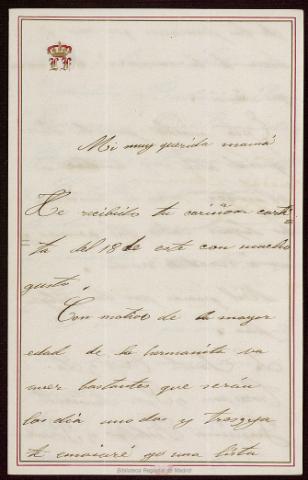 Mi muy querida mamá
He recibido tu cariñosa carti=
=ta del 18 de este con mucho
gusto.
Con motivo de la mayor
edad de la hermanita va
aver bastantes que serán
los dia uno dos y tres ya
te enviaré yo una lista
Biblioteca Regional de Madrid